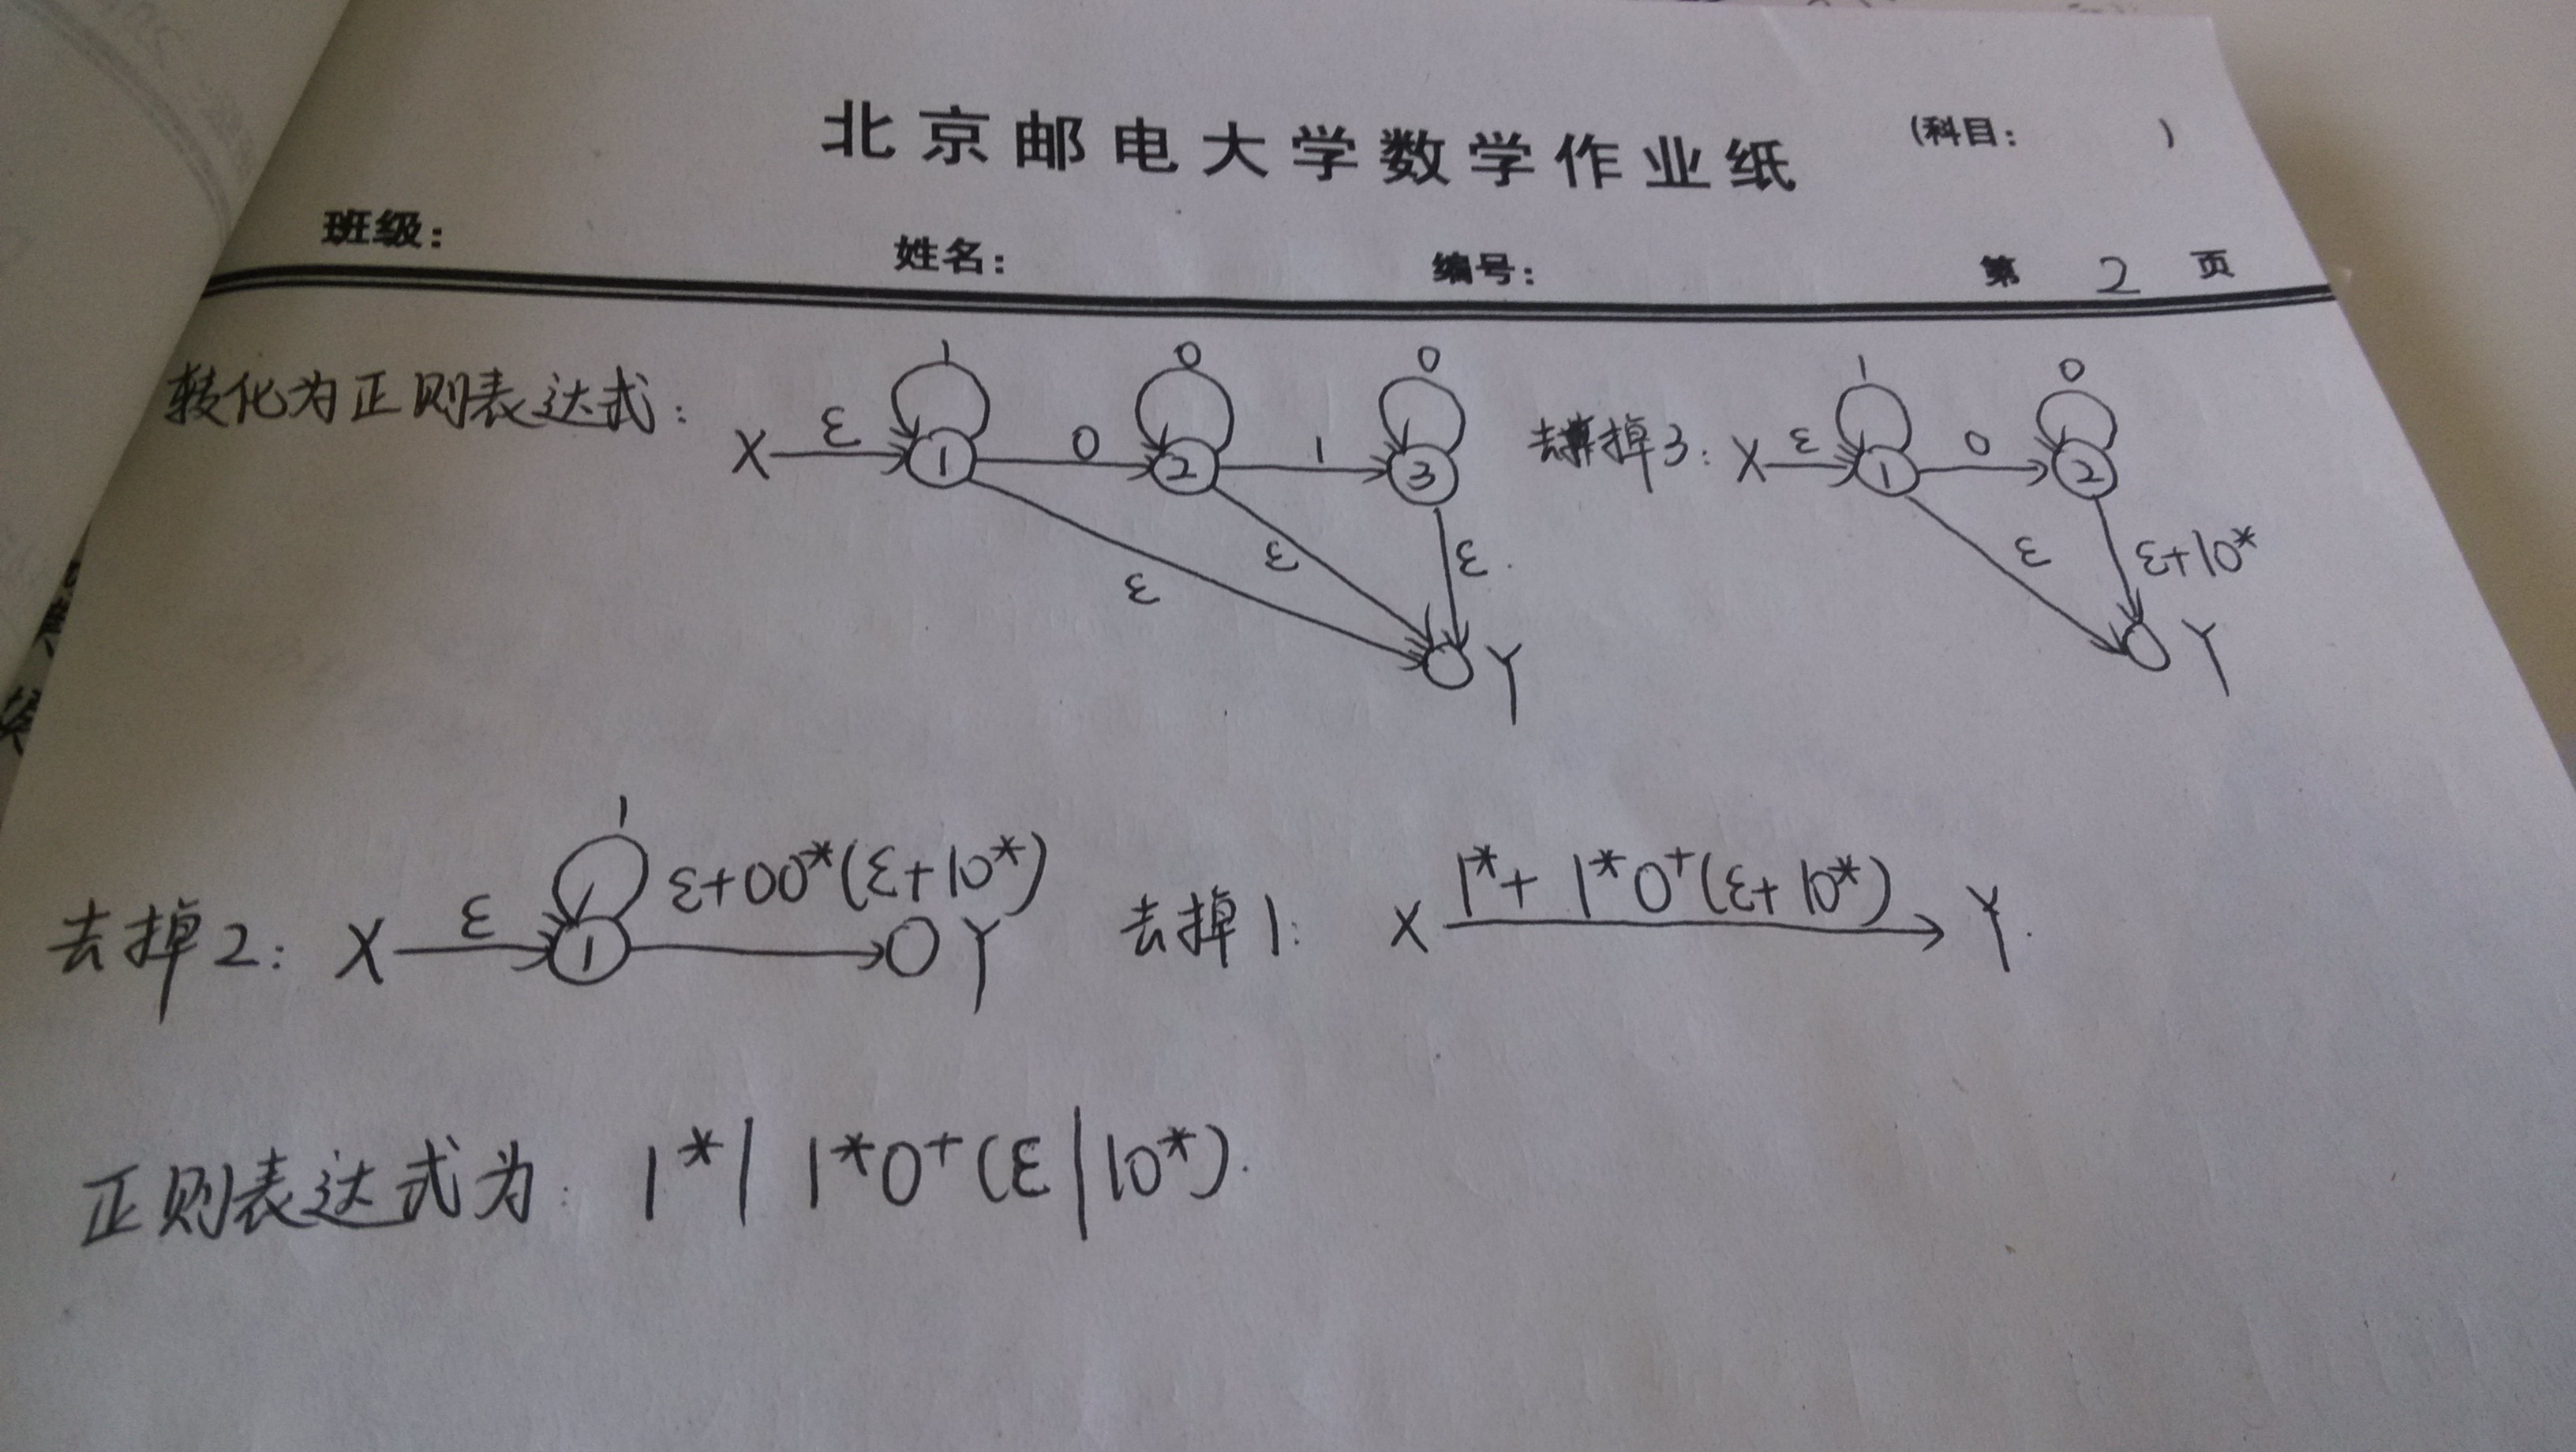 北京邮电大学数学作业纸 (科目: )
班级: 姓名: 编号: 第 2 页
转化为正则表达式: X ε 1 1 0 2 0 1 3 0 ε ε ε Y
去掉3: X ε 1 1 0 2 0 ε ε+10* Y
去掉2: X ε 1 1 ε+00*(ε+10*) Y
去掉1: X 1*+ 1*0+(ε+10*) Y.
正则表达式为: 1*| 1*0+(ε|10*).